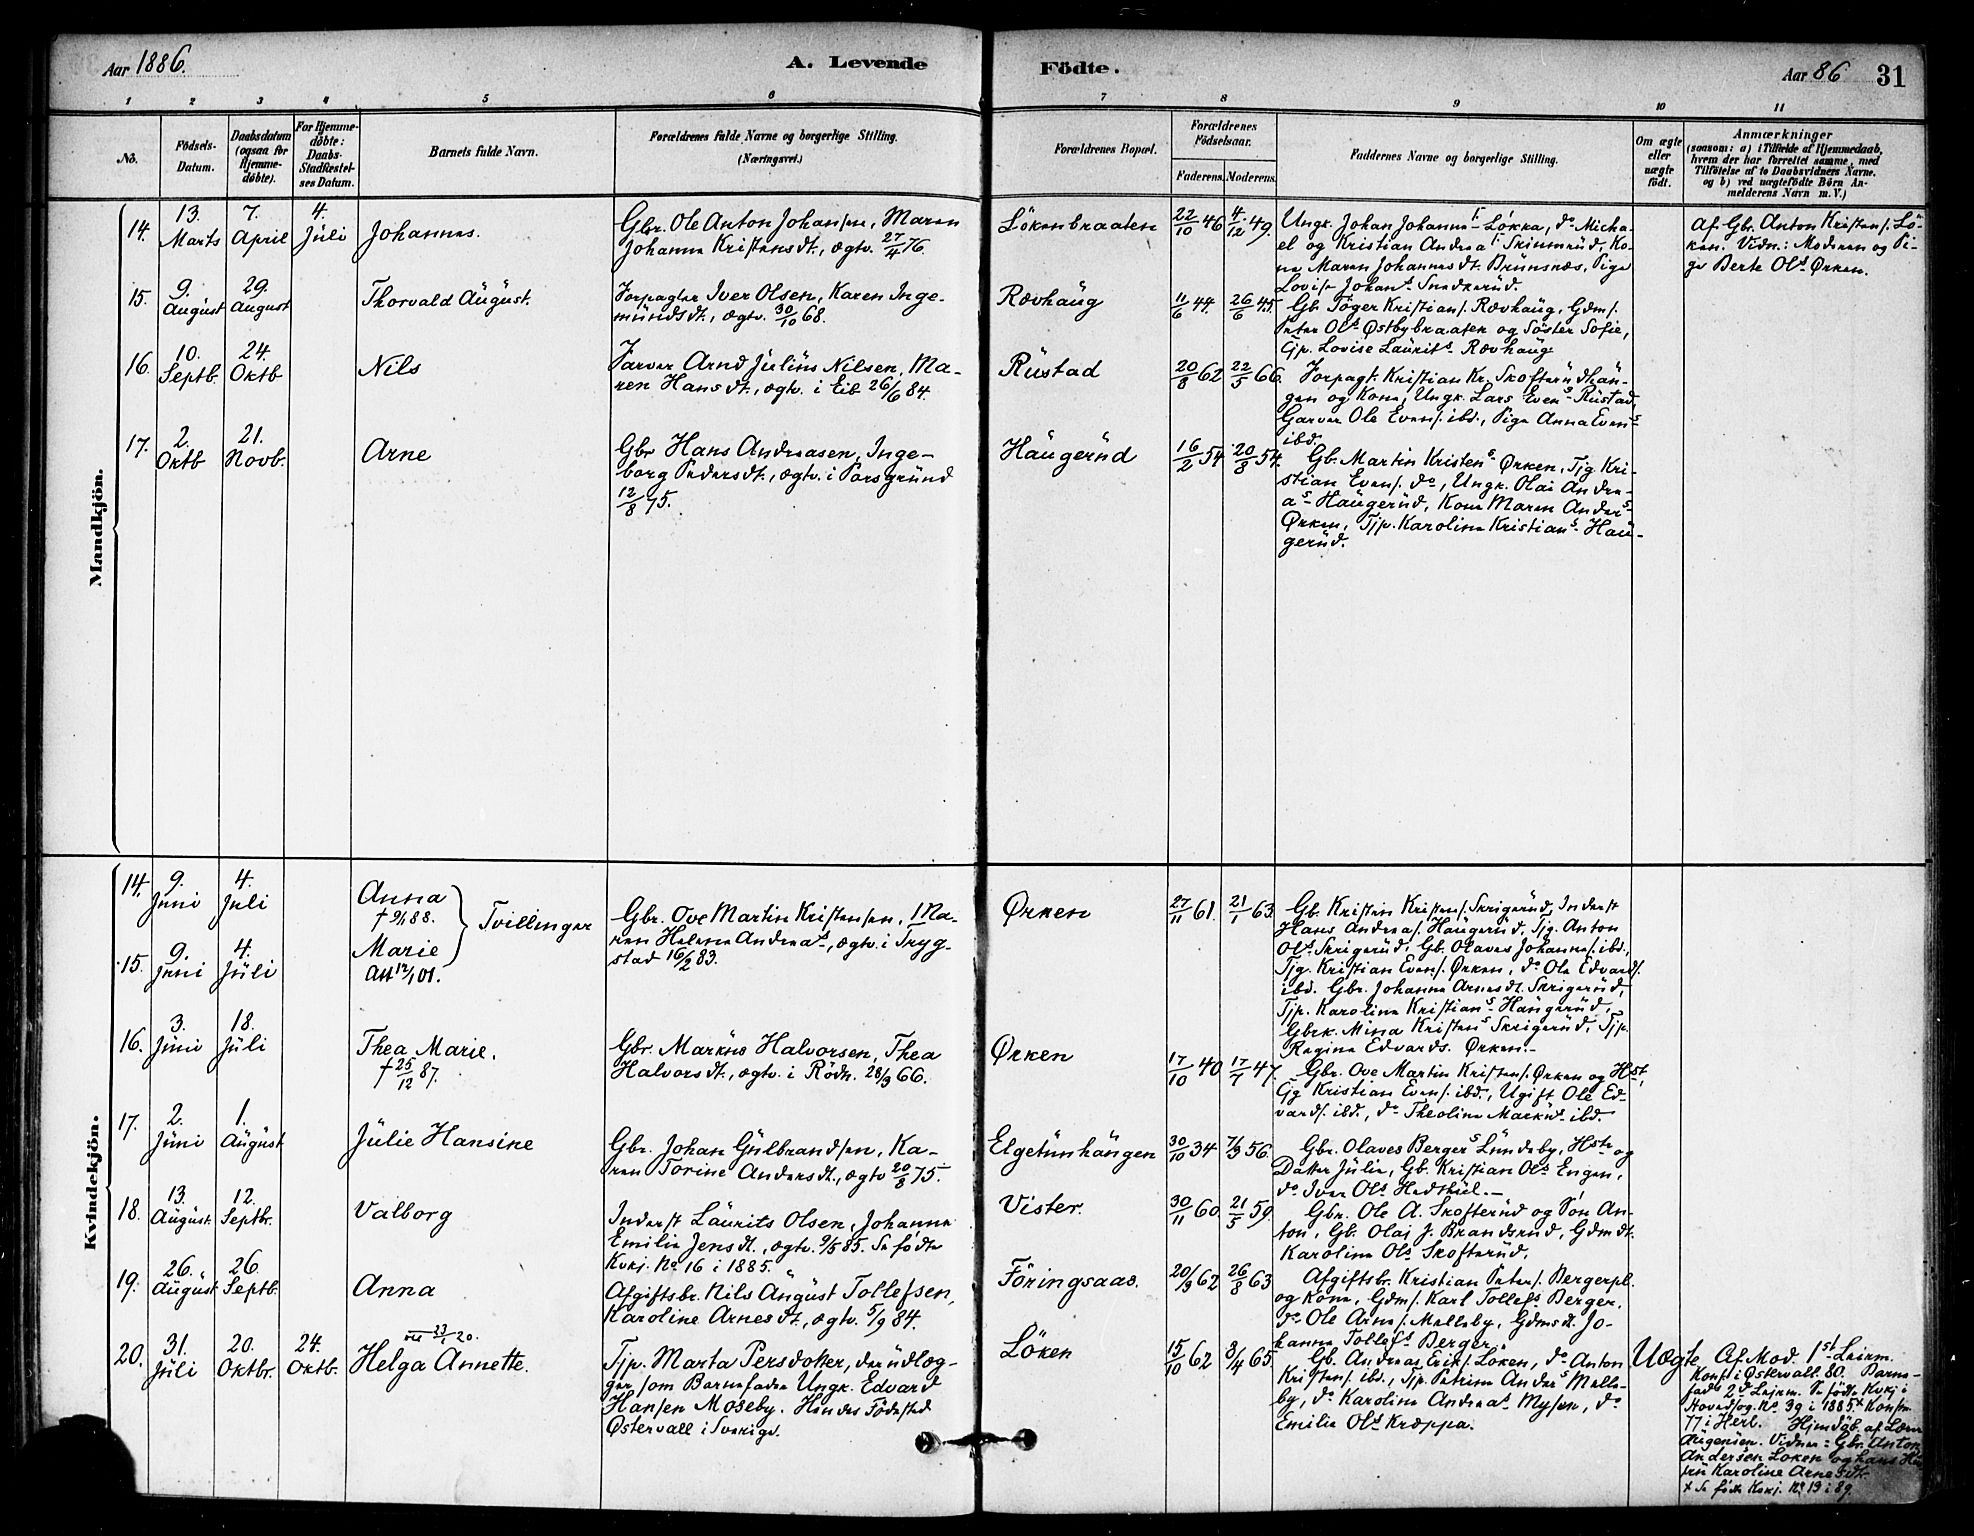 Aar 1886.
A. Levende
Födte.
Aar 86
31
1 2 3 4 5 6 7 8 9 10 11
No.
Födsels-
Datum.
Daabsdatum
(ogsaa for
Hjemme-
döbte).
For Hjemme-
döbte:
Daabs-
Stadfæstel-
ses Datum.
Barnets fulde Navn.
Forældrenes fulde Navne og borgerlige Stilling.
(Næringsvei.)
Forældrenes Bopæl.
Forældrenes
Födselsaar.
Faderens. Moderens.
Faddernes Navne og borgerlige Stilling.
Om ægte
eller
uægte
födt.
Anmærkninger
(saasom: a) i Tilfælde af Hjemmedaab,
hvem der har forrettet samme, med
Tilföielse af to Daabsvidners Navne.
og b) ved uægtefödte Börn An-
melderens Navn m. V.)
Mandkjön.
14.
13.
Marts
7.
April
4.
Juli
Johannes.
Gbr. Ole Anton Johansen, Maren
Johanne Kristensdt., ægtv. 27/4 76.
Lökenbraaten
22/10 46
4/12 49.
Ungk. Johan Johannes Løkka, do Micha-
el og Kristian Andreas Skinnerud, Ko-
ne Maren Johannesdt. Brunsnæs, Pige
Lovise Johans Snedkerud.
Af Gbr. Anton Kristens. Lö-
ken. Vidn.: Moderen og Pi-
ge Berte Ols. Ørken.
15.
9.
August
29.
August
Thorvald August.
Forpagter Iver Olsen, Karen Inge-
mundsdt., ægtv. 30/10 68.
Rævhaug
11/6 44.
26/6 45.
Gb. Töger Kristians. Rævhaug, Gdms.
Peter Ols. Østbybraaten og Söster Sofie,
Tjp. Lovise Laurits. Rævhaug
16.
10.
Septb.
24.
Oktb
Nils
Farver Arnd Julius Nilsen, Ma-
ren Hansdt., ægtv. i Eib 26/6 84.
Rustad
20/8 62
22/5 66.
Forpagt. Kristian Kr. Skofterudhan-
gen og Kone, Ungk. Lars Evens. Rustad,
Garver Ole Evens. ibd., Pige Anna Evens.
ibd.
17.
2.
Oktb
21.
Novb.
Arne
Gbr Hans Andreasen, Inge-
borg Pedersdt., ægtv. i Porsgrund
12/8 75.
Haugerud
16/2 54
20/8 54.
Gb. Martin Kristens. Ørken, Tjg Kri-
stian Evens. do, Ungk. Olai Andre-
as. Haugerud, Kone Maren Anders.
Ørken, Tjp. Karoline Kristians. Hau-
gerud.
Kvindekjön.
14.
9.
Juni
4.
Juli
Anna
† 9/1 88.
Tvillinger
Gbr. Ove Martin Kristensen, Ma-
ren Helene Andreas., ægtv. i Tryg-
stad 16/2 83.
Ørken
27/11 61.
21/1 63.
Gb. Kristen Kristens. Skrigerud, Inderst
Hans Andreas. Haugerud, Tjg. Anton
Ols. Skrigerud, Gb. Olaves Johannes. ibd.,
Tjg. Kristian Evens. Ørken, do Ole Edvards.
ibd. Gbr. Johanne Arnesdt. Skrigerud,
Tjp. Karoline Kristians. Haugerud,
Gbrk. Mina Kristens. Skrigerud, Tjp.
Regine Edvards. Ørken.
15.
9.
Juni
4.
Juli
Marie
Att 12/1 01.
16.
3.
Juni
18.
Juli
Thea Marie.
† 25/12 87.
Gbr. Markus Halvorsen, Thea
Halvorsdt., ægtv. i Rödn. 28/9 66.
Ørken
17/10 40
17/7 47.
Gbr. Ove Martin Kristens. Ørken og Hst,
Tjg Kristian Evens. ibd., Ugift Ole Ed-
vards. ibd., do Theoline Markus. ibd.
17.
2.
Juni
1.
August
Julie Hansine
Gbr. Johan Gulbrandsen, Ka-
ren Torine Andersdt., ægtv 20/8 75.
Elgetunhaugen
30/10 34
7/3 56.
Gbr. Olaves Bergers. Lundeby, Hstr og
Datter Julie, Gb. Kristian Ols. Engen,
do Iver Ols.
18.
13.
August.
12.
Septbr.
Valborg
Inderst Laurits Olsen, Johanne
Emilie Jensdt., ægtv. 9/5 85. Se födte
Kvkj. No 16 i 1885.
Vister.
30/11 60
21/5 59.
Gbr. Ole A. Skofterud og Sön An-
ton, Gb. Olai J. Brandsrud, Gdmdt.
Karoline Ols. Skofterud.
19.
26.
August
26.
Septb.
Anna
Afgiftsbr. Nils August Tollefsen,
Karoline Arnesdt., ægtv. 5/9 84.
Föringsaas.
20/9 62
26/8 63
Afgiftsbr. Kristian Peters. Bergerpl.
og Kone, Gdms. Karl Tollefs. Berger,
do Ole Arnes. Melleby, Gdmsdt. Jo-
hanne Tollefs. Berger.
20.
31.
Juli
20.
Oktbr.
24.
Oktb.
Helga Annette.
Tjp. Marta Persdotter, der udlæg-
ger som Barnefader Ungk. Edvard
Hansen Moseby. Hendes Födested
Østervall i Sverige.
Löken
15/10 62
3/4 65.
Gb. Andreas Eriks. Löken, do Anton
Kristens. ibd., Tjp. Petrine Anders. Melle-
by, do Karoline Andreas. Mysen, do
Emilie Ols. Kroppa.
Uægte
Af Mod. 1st Leierm.
Konf. i Østervall. 80. Barne-
fads 2d Leierm. Se födte Kvkj. i
Hovedsog. No 39 i 1885. + Konfm.
77 i Herl. Hjmdöb. af Lærer
Augensen. Vidner: Gbr. Anton
Andersen Löken og hans Hu-
stru Karoline Arnesdt.
+ Se födte Kvkj. No 19 i 89.